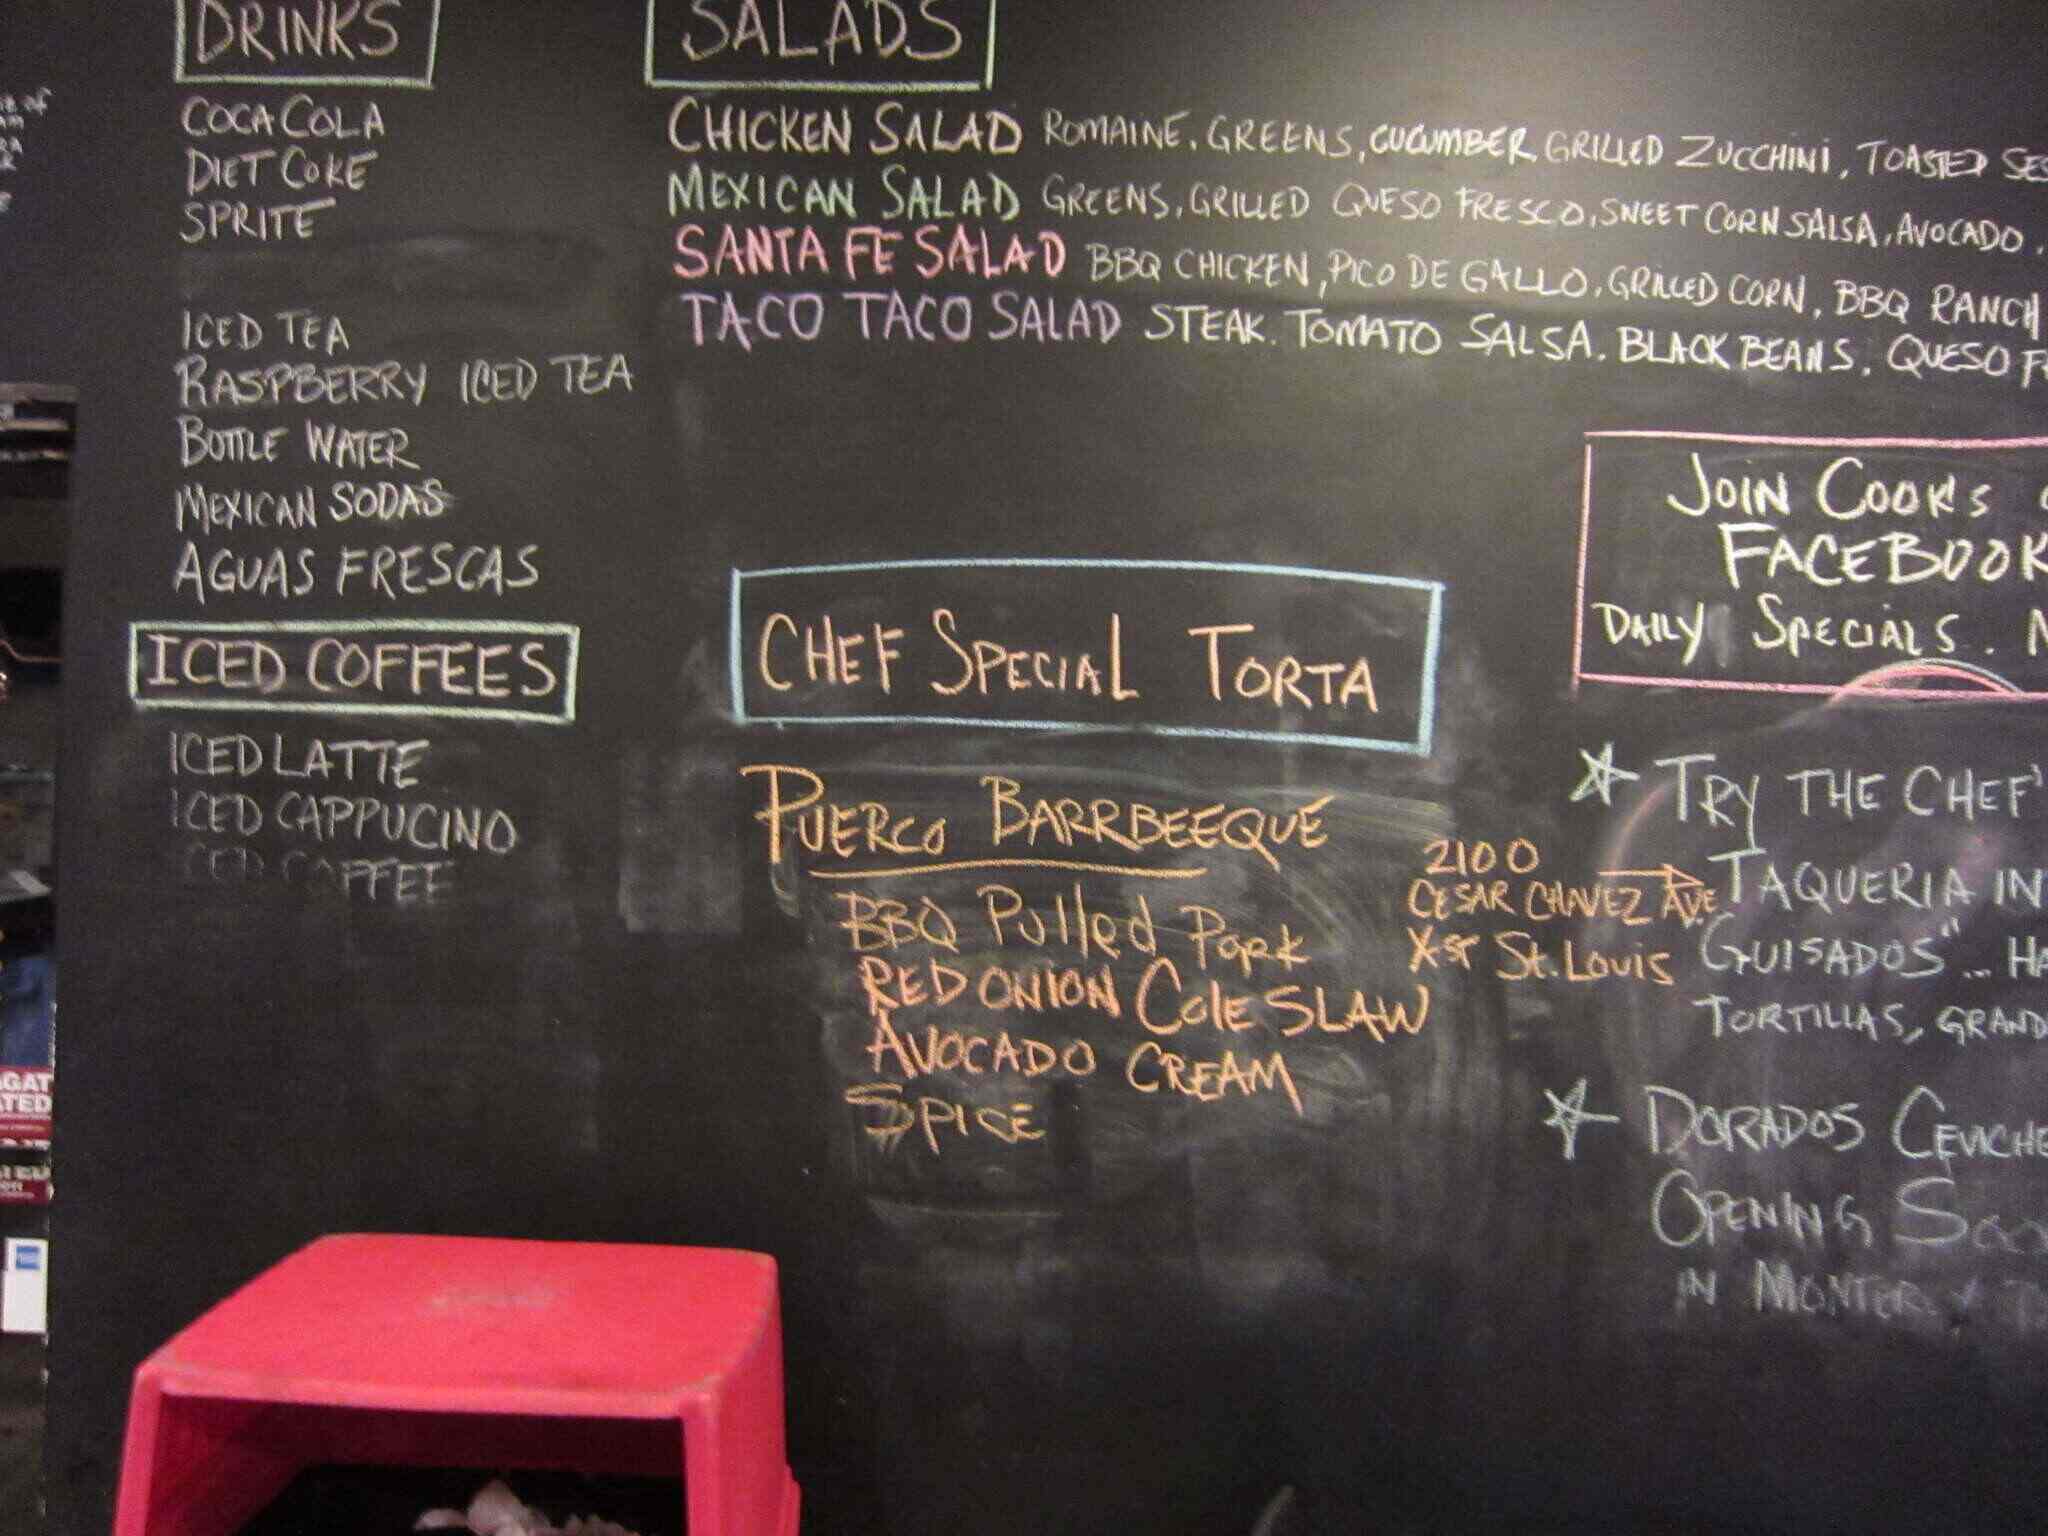 DRINKS
COCA COLA
DIET COKE
SPRITE
ICED TEA
RASPBERRY ICED TEA
BOTTLE WATER
MEXICAN SODAS
AGUAS FRESCAS
ICED COFFEES
ICED LATTE
ICED CAPPUCINO
ICED COFFEE
SALADS
CHICKEN SALAD ROMAINE. GREENS, CUCUMBER, GRILLED ZUCCHINI, TOASTED
MEXICAN SALAD GREENS, GRILLED QUESO FRESCO, SWEET CORN SALSA, AVOCADO.
SANTA FE SALAD BBQ CHICKEN, PICO DE GALLO, GRILLED CORN, BBQ RANCH
TACO TACO SALAD STEAK. TOMATO SALSA. BLACK BEANS. QUESO
CHEF SPECIAL TORTA
PUERCO BARRBEEQUE
BBQ Pulled Pork
RED ONION Cole SLAW
AVOCADO CREAM
SPICE
JOIN COOK'S
FACEBOOK
DAILY SPECIALS.
TRY THE CHEF'
TAQUERIA IN
GUISADOS"...
TORTILLAS,
2100
CESAR CHAVEZ AVE
X ST ST. LOUIS
DORADOS CEVICHE
OPENING
IN MONTEREY